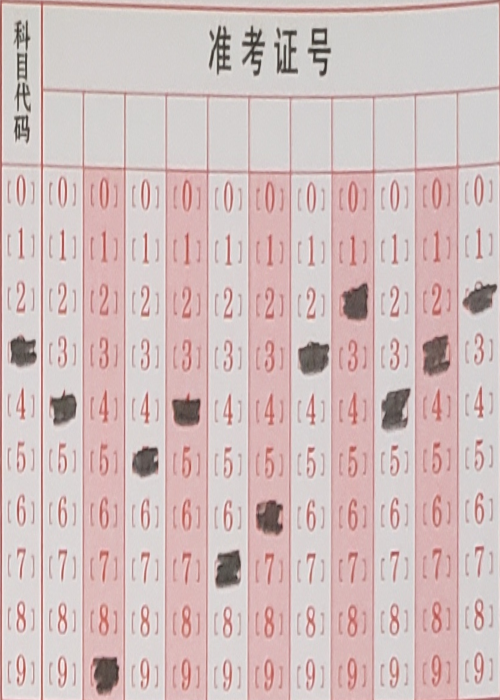 科目代码
准考证号
[0] [0] [0] [0] [0] [0] [0] [0] [0] [0] [0] [0]
[1] [1] [1] [1] [1] [1] [1] [1] [1] [1] [1] [1]
[2] [2] [2] [2] [2] [2] [2] [2] [2] [2]
[3] [3] [3] [3] [3] [3] [3] [3] [3]
[4] [4] [4] [4] [4] [4] [4] [4] [4]
[5] [5] [5] [5] [5] [5] [5] [5] [5] [5] [5]
[6] [6] [6] [6] [6] [6] [6] [6] [6] [6] [6]
[7] [7] [7] [7] [7] [7] [7] [7] [7] [7] [7]
[8] [8] [8] [8] [8] [8] [8] [8] [8] [8] [8] [8]
[9] [9] [9] [9] [9] [9] [9] [9] [9] [9] [9]